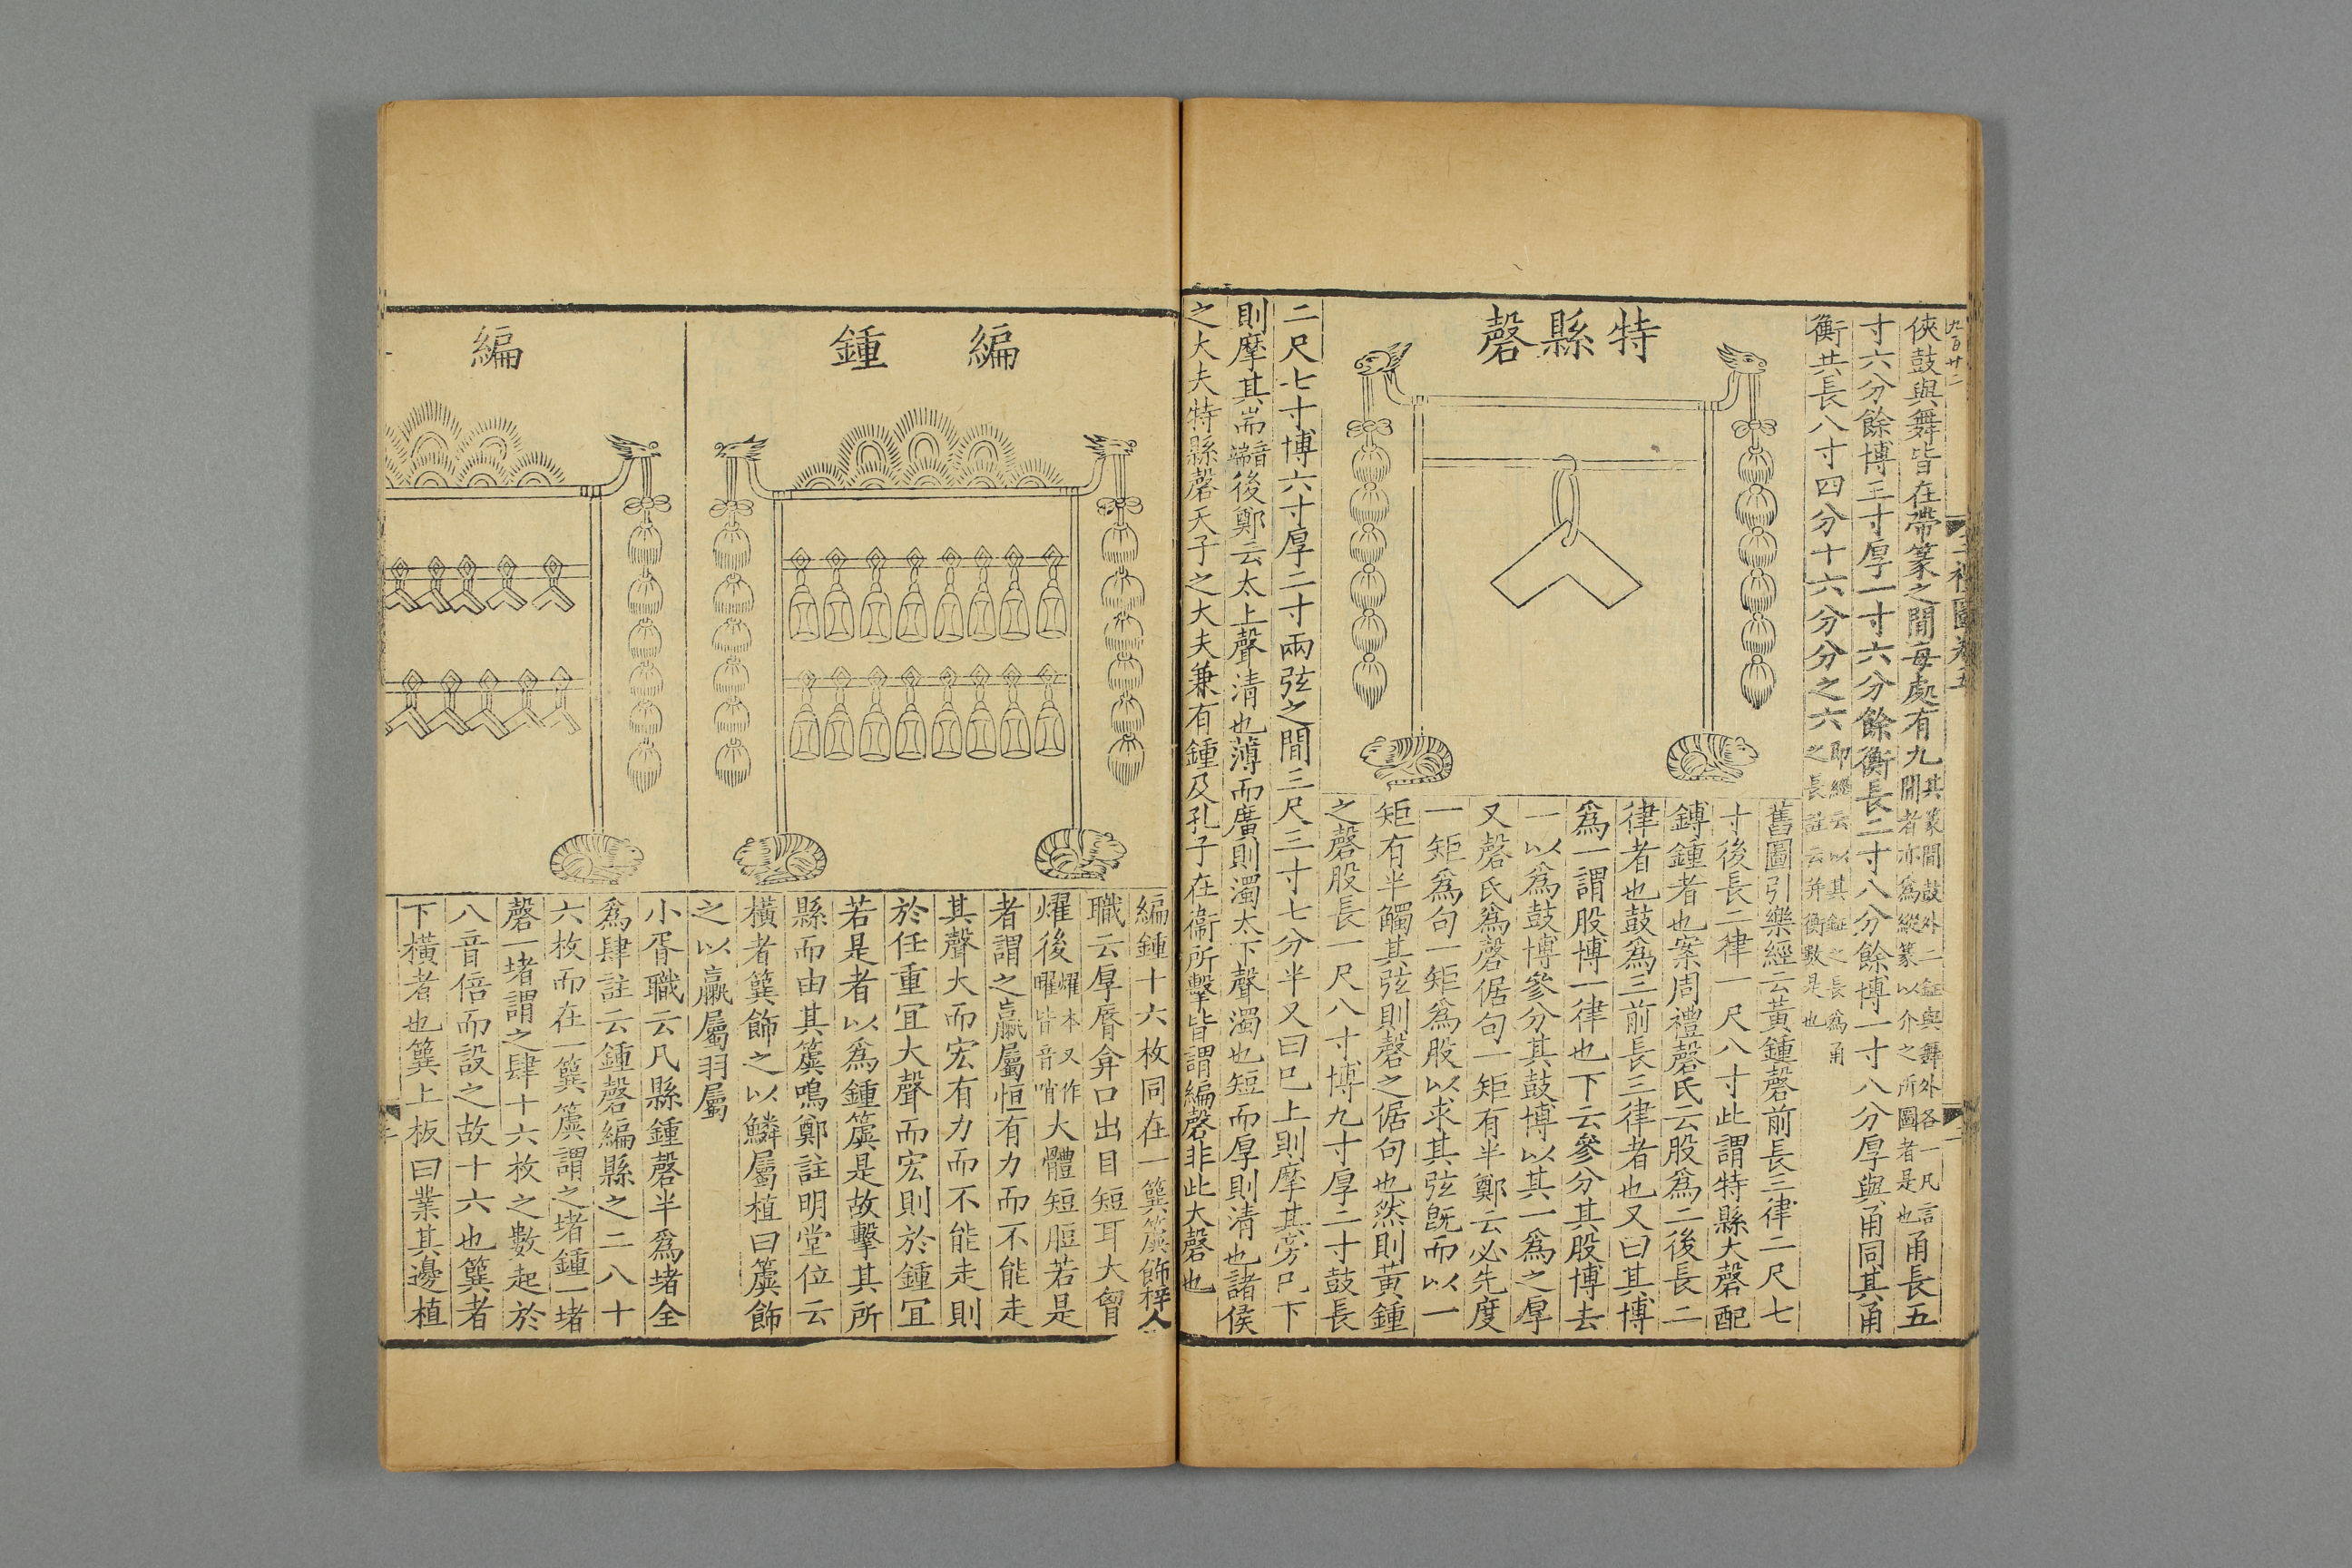 九百廿二
三禮圖卷五
俠鼓與舞皆在帶篆之間每處有九其篆間鼓外二鉦與舞外各一凡言
間者亦爲縱篆以介之所圖者是也甬長五
寸六分餘博三寸厚一寸六分餘衡長二寸八分餘博一寸八分厚與甬同其甬
衡共長八寸四分十六分分之六即經云以其鉦之長爲甬
之長註云并衡數是也
特縣磬
舊圖引樂經云黃鍾磬前長三律二尺七
寸後長二律一尺八寸此謂特縣大磬配
鎛鍾者也案周禮磬氏云股爲二後長二
律者也鼓爲三前長三律者也又曰其博
爲一謂股博一律也下云參分其股博去
一以爲鼓博參分其鼓博以其一爲之厚
又磬氏爲磬倨句一矩有半鄭云必先度
一矩爲句一矩爲股以求其弦既而以一
矩有半觸其弦則磬之倨句也然則黃鍾
之磬股長一尺八寸博九寸厚二寸鼓長
二尺七寸博六寸厚二寸兩弦之間三尺三寸七分半又曰巳上則摩其旁巳下
則摩其耑音端後鄭云太上聲清也薄而廣則濁太下聲濁也短而厚則清也諸侯
之大夫特縣磬天子之大夫兼有鍾及孔子在衞所擊皆謂編磬非此大磬也
編鍾
編鍾十六枚同在一簨簴飾梓人
職云厚脣弇口出目短耳大胷
燿後燿本又作
曜皆音哨大體短脰若是
者謂之臝屬恒有力而不能走
其聲大而宏有力而不能走則
於任重宜大聲而宏則於鍾宜
若是者以爲鍾簴是故擊其所
縣而由其簴鳴鄭註明堂位云
橫者簨飾之以鱗屬植曰簴飾
之以臝屬羽屬
編
小胥職云凡縣鍾磬半爲堵全
爲肆註云鍾磬編縣之二八十
六枚而在一簨簴謂之堵鍾一堵
磬一堵謂之肆十六枚之數起於
八音倍而設之故十六也簨者
下橫者也簨上板曰業其邊植